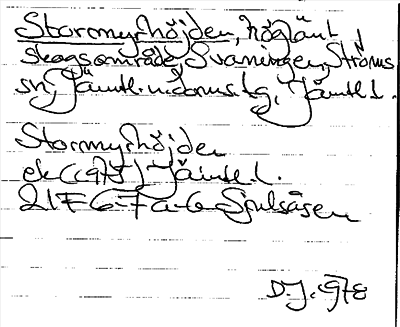 Stormyrhöjden, höglänt
skogsområde, Svaningen, Ströms
sn, Jämtl. n. doms. tg, Jämtl. l.
Stormyrhöjden
ek (1975) Jämtl. l.
21F 6-7a-6 Sjulsåsen
D.J. 1978